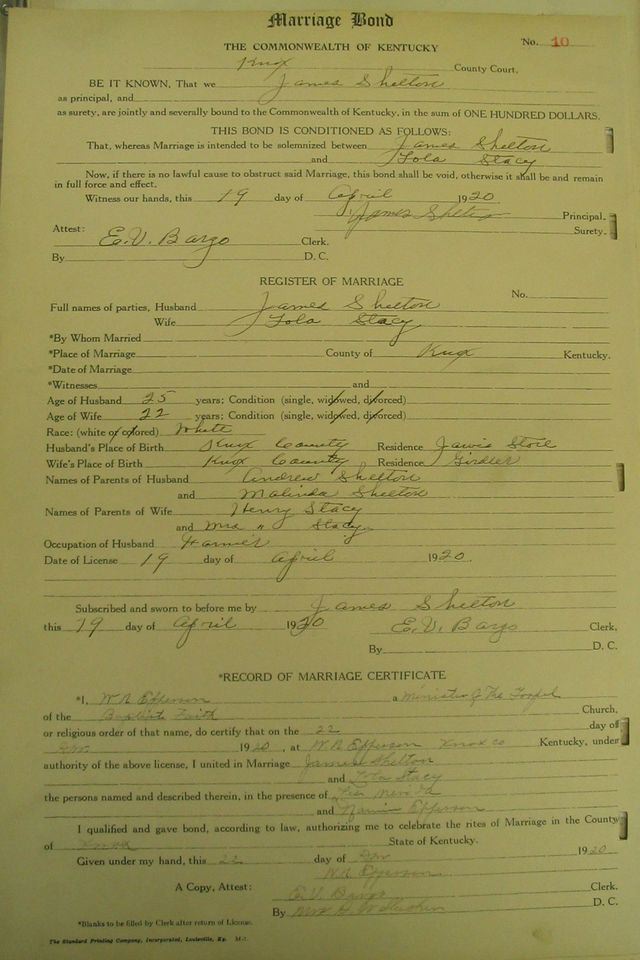 Marriage Bond
THE COMMONWEALTH OF KENTUCKY No. 10
Knox County Court.
BE IT KNOWN, That we James Shelton
as principal, and
as surety, are jointly and severally bound to the Commonwealth of Kentucky, in the sum of ONE HUNDRED DOLLARS.
THIS BOND IS CONDITIONED AS FOLLOWS:
That, whereas Marriage is intended to be solemnized between James Shelton
and Lola Stacy
Now, if there is no lawful cause to obstruct said Marriage, this bond shall be void, otherwise it shall be and remain
in full force and effect.
Witness our hands, this 19 day of April 1920
James Shelton Principal.
Surety.
Attest: E. V. Bargo Clerk.
By D. C.
REGISTER OF MARRIAGE
No.
Full names of parties, Husband James Shelton
Wife Lola Stacy
*By Whom Married
*Place of Marriage County of Knox Kentucky.
*Date of Marriage
*Witnesses and
Age of Husband 25 years; Condition (single, widowed, divorced)
Age of Wife 22 years; Condition (single, widowed, divorced)
Race: (white or colored) White
Husband's Place of Birth Knox County Residence Jarvis Store
Wife's Place of Birth Knox County Residence Girdler
Names of Parents of Husband Andrew Shelton
and Malinda Shelton
Names of Parents of Wife Henry Stacy
and Mrs " Stacy
Occupation of Husband Farmer
Date of License 19 day of April 1920.
Subscribed and sworn to before me by James Shelton
this 19 day of April 1920 E. V. Bargo Clerk,
By D. C.
*RECORD OF MARRIAGE CERTIFICATE
*I, W R Epperson a Minister of The Gospel
of the Baptist Faith Church,
or religious order of that name, do certify that on the 22 day of
1920, at W R Epperson Knox co Kentucky, under
authority of the above license, I united in Marriage James Shelton
and Lola Stacy
the persons named and described therein, in the presence of
and Epperson
I qualified and gave bond, according to law, authorizing me to celebrate the rites of Marriage in the County
of Knox State of Kentucky.
Given under my hand, this 22 day of 1920
W. R. Epperson
A Copy, Attest: E. V. Bargo Clerk.
By D. C.
*Blanks to be filled by Clerk after return of License.
The Standard Printing Company, Incorporated, Louisville, Ky.